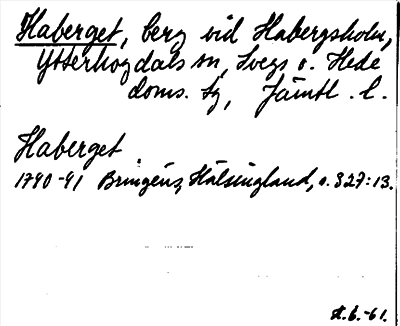 Haberget, berg vid Habergsholm,
Ytterhogdals sn, Svegs o. Hede
doms. tg, Jämtl. l.
Haberget
1790-91 Bringéus, Hälsingland, s. 327:13.
H.b.-61.